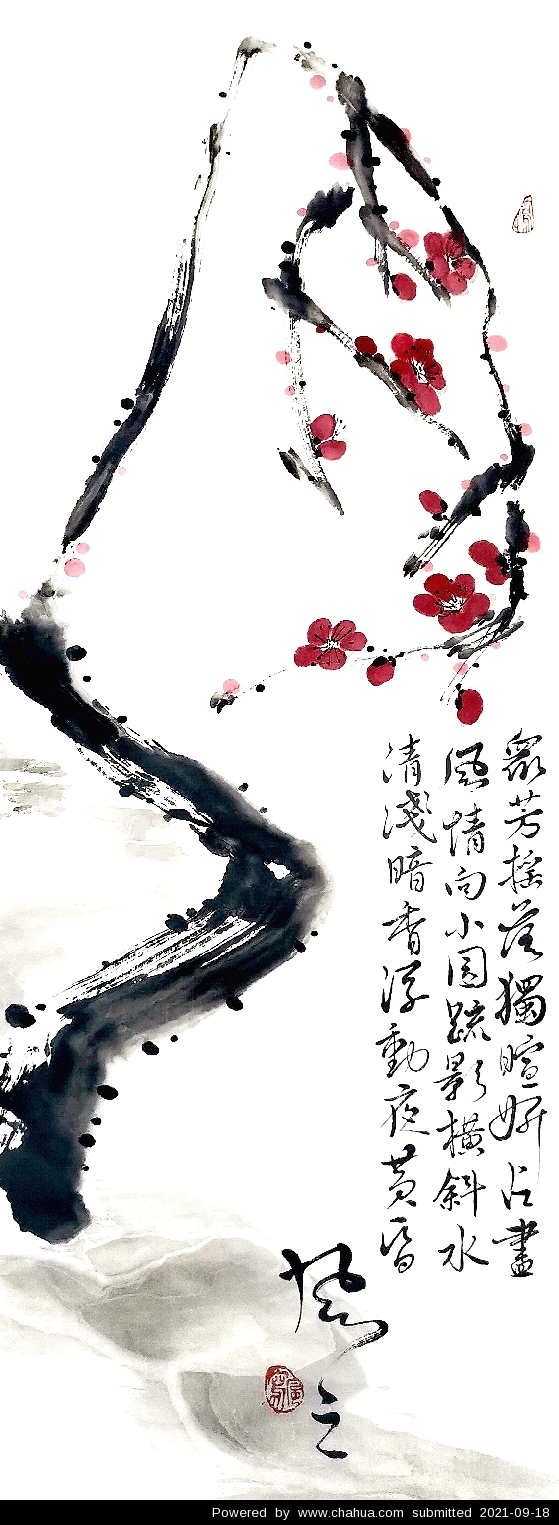 眾芳搖落獨暄妍占盡
風情向小園疏影橫斜水
清淺暗香浮動夜黃昏
Powered by www.chahua.com submitted 2021-09-18